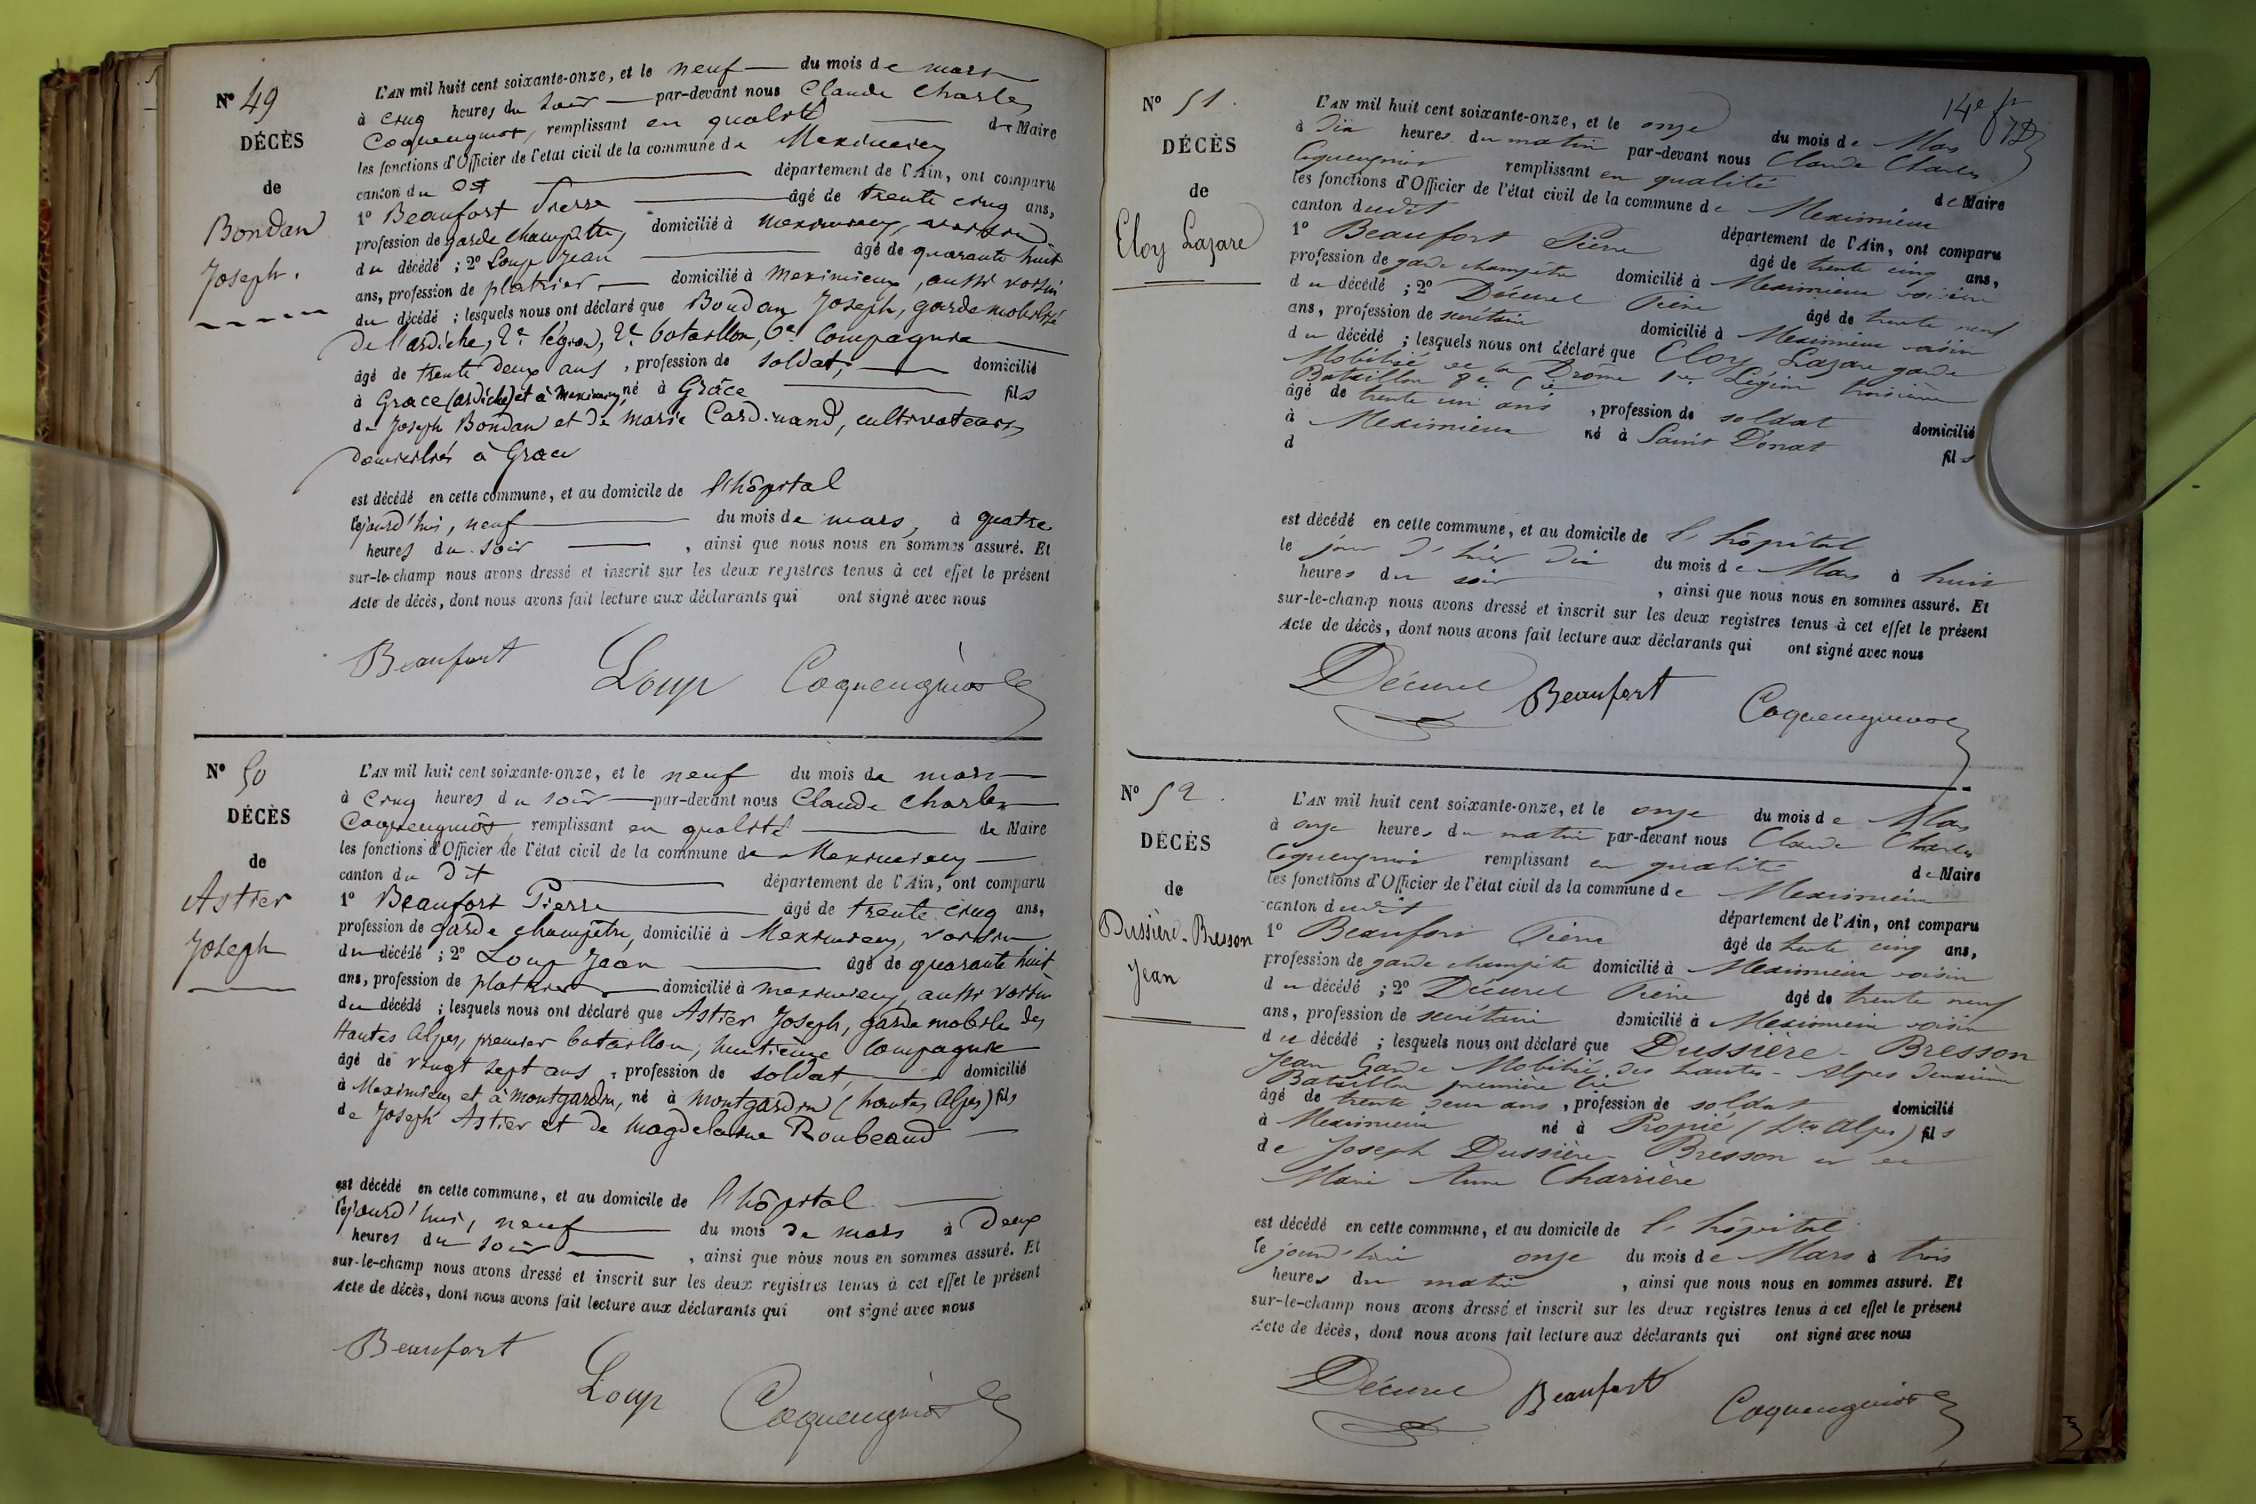 N° 49
DÉCÈS
de
Bondan
Joseph.
L'AN mil huit cent soixante-onze, et le neuf du mois de mars
à cinq heures du soir par-devant nous Claude Charles
Coquengniot, remplissant en qualité de Maire
les fonctions d'Officier de l'état civil de la commune de Meximieux
canton du dit département de l'Ain, ont comparu
1° Beaufort Pierre âgé de trente cinq ans,
profession de garde champêtre, domicilié à Meximieux, voisin
du décédé ; 2° Loup Jean âgé de quarante huit
ans, profession de platrier, domicilié à Meximieux, aussi voisin
du décédé ; lesquels nous ont déclaré que Bondan Joseph, garde mobilisé
de l'ardèche, 2e légion, 2e bataillon, 6e compagnie
âgé de trente deux ans, profession de soldat, domicilié
à Grace (ardèche) et à Meximieux, né à Grâce fils
de Joseph Bondan et de marie Cardinand, cultivateurs
domiciliés à Grace
est décédé en cette commune, et au domicile de l'hôpital
le jourd'hui, neuf du mois de mars, à quatre
heures du soir, ainsi que nous nous en sommes assuré. Et
sur-le-champ nous avons dressé et inscrit sur les deux registres tenus à cet effet le présent
Acte de décès, dont nous avons fait lecture aux déclarants qui ont signé avec nous
Beaufort Loup Coquengniot
N° 50
DÉCÈS
de
Astier
Joseph
L'AN mil huit cent soixante-onze, et le neuf du mois de mars
à cinq heures du soir par-devant nous Claude Charles
Coquengniot, remplissant en qualité de Maire
les fonctions d'Officier de l'état civil de la commune de Meximieux
canton du dit département de l'Ain, ont comparu
1° Beaufort Pierre âgé de trente cinq ans,
profession de garde champêtre, domicilié à Meximieux, voisin
du décédé ; 2° Loup Jean âgé de quarante huit
ans, profession de platrier domicilié à Meximieux, aussi voisin
du décédé ; lesquels nous ont déclaré que Astier Joseph, garde mobile des
Hautes Alpes, premier bataillon, huitième compagnie
âgé de vingt sept ans, profession de soldat, domicilié
à Meximieux et à Montgardin, né à Montgardin (hautes Alpes) fils
de Joseph Astier et de Magdelaine Roubeaud
est décédé en cette commune, et au domicile de l'hôpital
le jourd'hui, neuf du mois de mars à deux
heures du soir, ainsi que nous nous en sommes assuré. Et
sur-le-champ nous avons dressé et inscrit sur les deux registres tenus à cet effet le présent
Acte de décès, dont nous avons fait lecture aux déclarants qui ont signé avec nous
Beaufort Loup Coquengniot
14e
N° 51.
DÉCÈS
de
Eloy Lazare
L'AN mil huit cent soixante-onze, et le onze du mois de Mars
à dix heures du matin par-devant nous Claude Charles
Coquengniot remplissant en qualité de Maire
les fonctions d'Officier de l'état civil de la commune de Meximieux
canton dudit département de l'Ain, ont comparu
1° Beaufort Pierre âgé de trente cinq ans,
profession de garde champêtre domicilié à Meximieux voisin
du décédé ; 2° Décurel Pierre âgé de trente neuf
ans, profession de secrétaire domicilié à Meximieux voisin
du décédé ; lesquels nous ont déclaré que Eloy Lazare garde
Mobilisé de la Drôme 1re Légion troisième
Bataillon 8e Cie
âgé de trente un ans, profession de soldat domicilié
à Meximieux né à Saint Donat fils
d
est décédé en cette commune, et au domicile de l'hôpital
le jour d'hier dix du mois de Mars à huit
heures du soir, ainsi que nous nous en sommes assuré. Et
sur-le-champ nous avons dressé et inscrit sur les deux registres tenus à cet effet le présent
Acte de décès, dont nous avons fait lecture aux déclarants qui ont signé avec nous
Décurel Beaufort Coquengniot
N° 52.
DÉCÈS
de
Dussière-Bresson
Jean
L'AN mil huit cent soixante-onze, et le onze du mois de Mars
à onze heures du matin par-devant nous Claude Charles
Coquengniot remplissant en qualité de Maire
les fonctions d'Officier de l'état civil de la commune de Meximieux
canton dudit département de l'Ain, ont comparu
1° Beaufort Pierre âgé de trente cinq ans,
profession de garde champêtre domicilié à Meximieux voisin
du décédé ; 2° Décurel Pierre âgé de trente neuf
ans, profession de secrétaire domicilié à Meximieux voisin
du décédé ; lesquels nous ont déclaré que Dussière-Bresson
Jean Garde Mobilisé des hautes-Alpes deuxième
Bataillon première Cie
âgé de trente deux ans, profession de soldat domicilié
à Meximieux né à Propié (Htes Alpes) fils
de Joseph Dussière-Bresson et de
Marie Anne Charrière
est décédé en cette commune, et au domicile de l'hôpital
le jourd'hui onze du mois de Mars à trois
heures du matin, ainsi que nous nous en sommes assuré. Et
sur-le-champ nous avons dressé et inscrit sur les deux registres tenus à cet effet le présent
Acte de décès, dont nous avons fait lecture aux déclarants qui ont signé avec nous
Décurel Beaufort Coquengniot